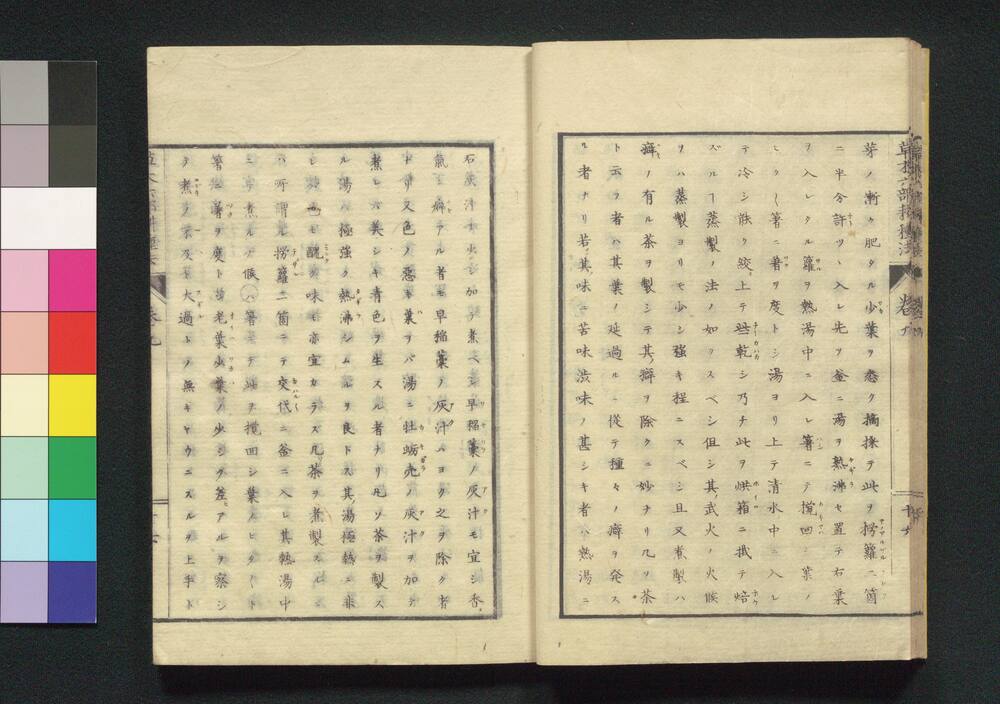 草木六部耕種法 卷九
芽ノ漸ク肥タル少葉ヲ悉ク摘採テ此ヲ撈籮二箇
ニ半分許ツヽ入レ先ツ釜ニ湯ヲ熱沸セ置テ右葉
ヲ入レタル籮ヲ熱湯中ニ入レ箸ニテ攪回シ葉ノ
ヒタ〳〵箸ニ著ヲ度トシ湯ヨリ上テ清水中ニ入レ
テ冷シ能ク絞上テ些乾シ乃チ此ヲ烘箱ニ拭テ焙
ズルヿ蒸製ノ法ノ如クスベシ但シ其武火ノ火候
ヲハ蒸製ヨリモ少シ強キ程ニスベシ且又煮製ハ
癖ノ有ル茶ヲ製シテ其癖ヲ除クニ妙ナリ凡ソ茶
ト云フ者ハ其葉ノ延過ルニ從テ種々ノ癖ヲ発ス
ル者ナリ若其味ニ苦味渋味ノ甚シキ者ハ熱湯ニ
石灰汁ヲ少シ加テ煮ベシ早稲藁ノ灰汁モ宜シ香
氣ニ癖アル者モ早稲藁ノ灰汁ハヨク之ヲ除ク者
ナリ又色ノ惡キ葉ヲバ湯ニ牡蛎売ノ灰汁ヲ加テ
煮レバ美シキ青色ヲ生スル者ナリ凡ソ茶ヲ製ス
ル湯ハ極強ク熱沸シムルヲ良トス其湯極熱ニ非
レバ色モ醜ク味モ亦宜カラス凡茶ヲ煮製スルニ
ハ所謂ル撈籮二箇ニテ交代ニ釜ニ入レ其熱湯中
ニ煮ルノ候ハ箸ニテ此ヲ攪回シ葉ノヒタ〳〵ト
箸ニ著ヲ度トシ老葉少葉ノ少シク差アルヲ察シ
テ煮ノ不及ト大過トノ無キヤウニスルヲ上手ト